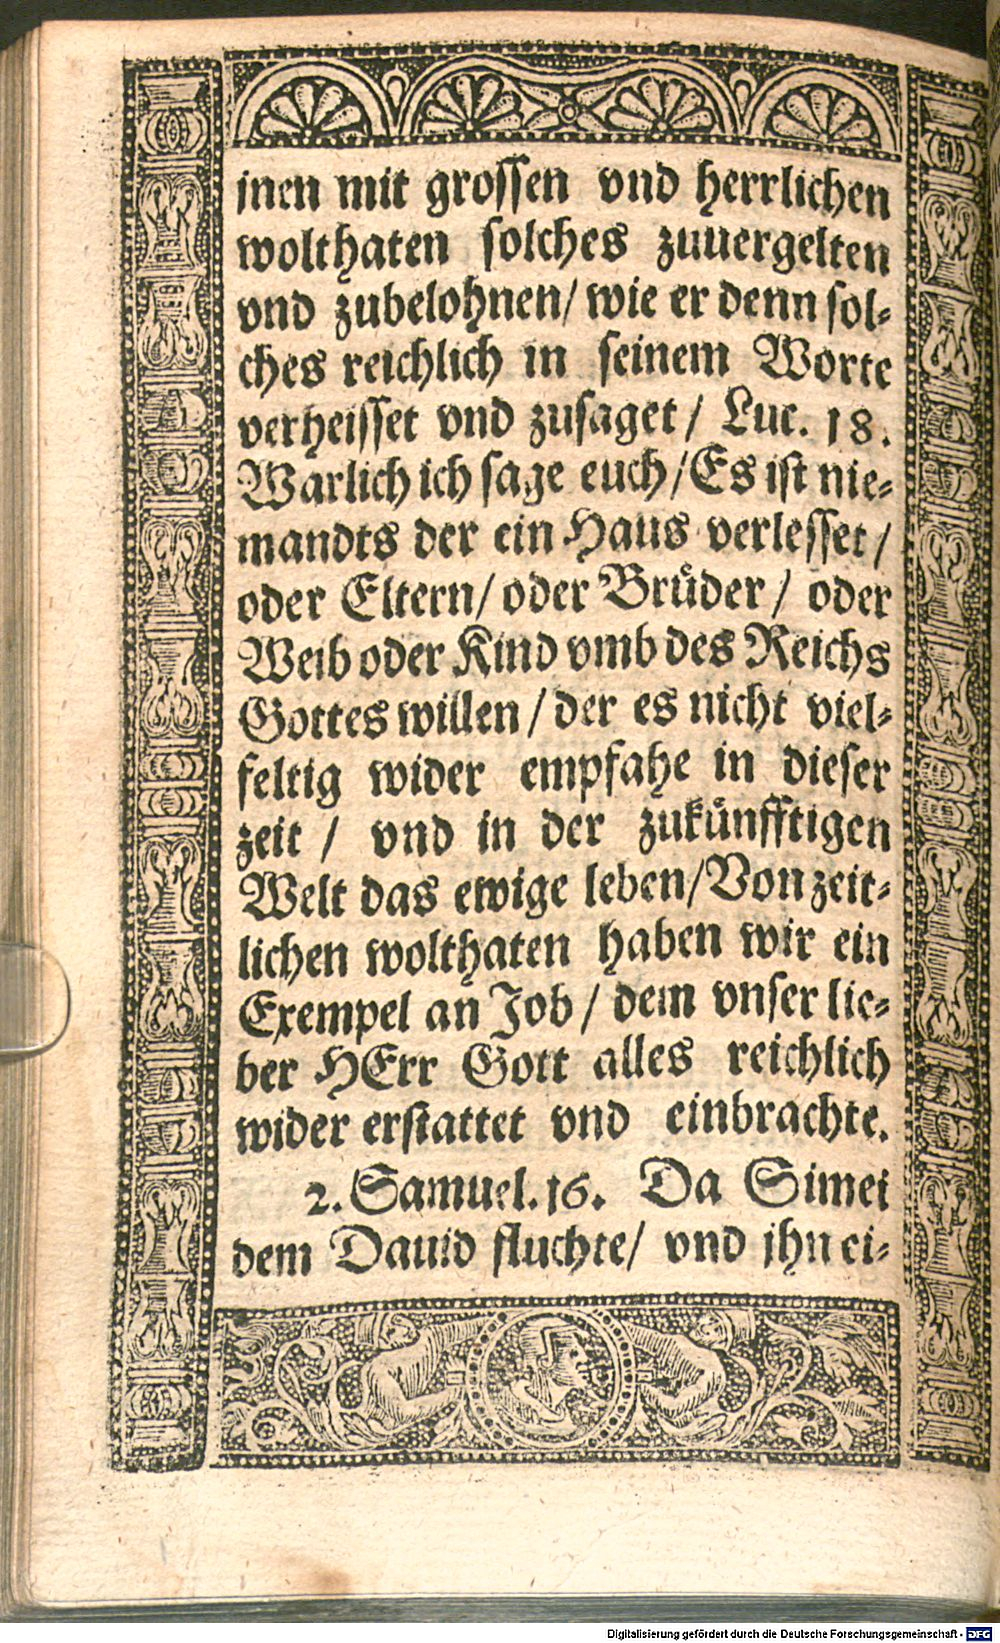 jnen mit grossen vnd herrlichen
wolthaten solches zuuergelten
vnd zubelohnen/ wie er denn sol-
ches reichlich in seinem Worte
verheisset vnd zusaget/ Luc. 18.
Warlich ich sage euch/ Es ist nie-
mandts der ein Haus verlesset/
oder Eltern/ oder Brüder/ oder
Weib oder Kind vmb des Reichs
Gottes willen/ der es nicht viel-
feltig wider empfahe in dieser
zeit/ vnd in der zukünfftigen
Welt das ewige leben/ Von zeit-
lichen wolthaten haben wir ein
Exempel an Job/ dem vnser lie-
ber HErr Gott alles reichlich
wider erstattet vnd einbrachte.
2. Samuel. 16. Da Simei
dem Dauid fluchte/ vnd jhn ei-
Digitalisierung gefördert durch die Deutsche Forschungsgemeinschaft - DFG